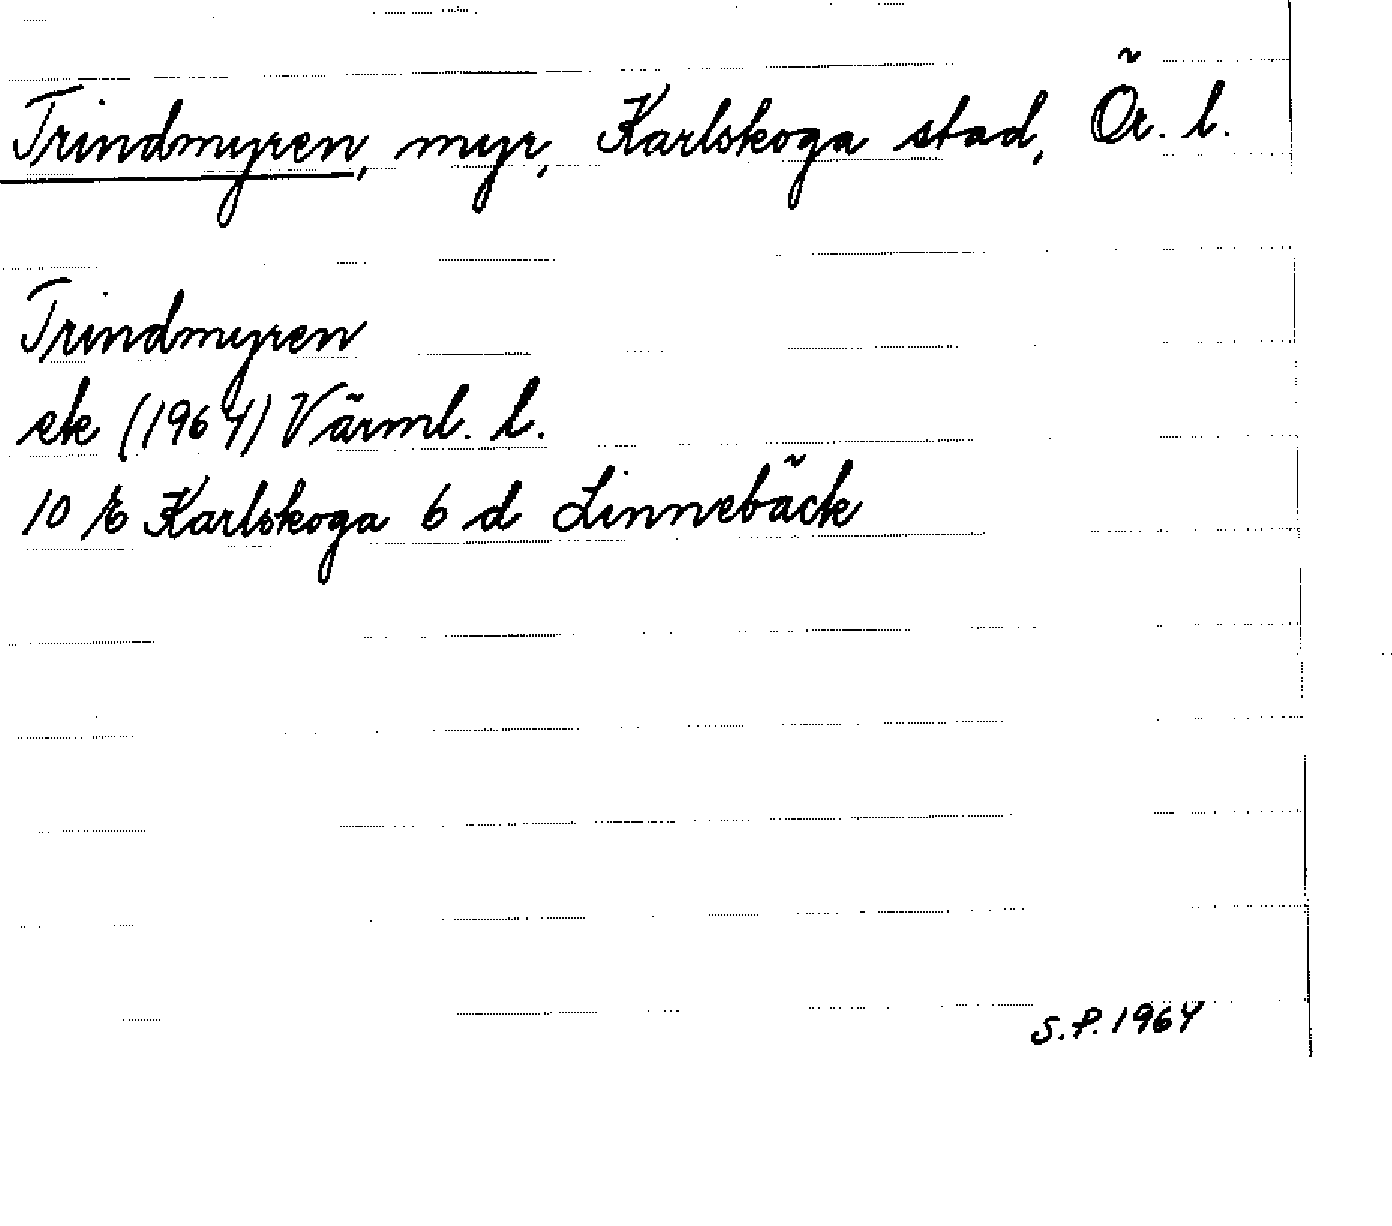 Trindmyren, myr, Karlskoga stad, Ör. l.
Trindmyren
ek (1964) Värml. l.
10 E Karlskoga 6 d Linnebäck
S.P. 1964